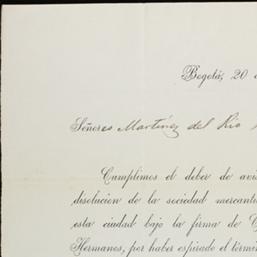 Bogotá, 20
Señores Martínez del Rio
Cumplimos el deber de avi
disolucion de la sociedad mercanti
esta ciudad bajo la firma de
Hermanos, por haber espirado el térmi